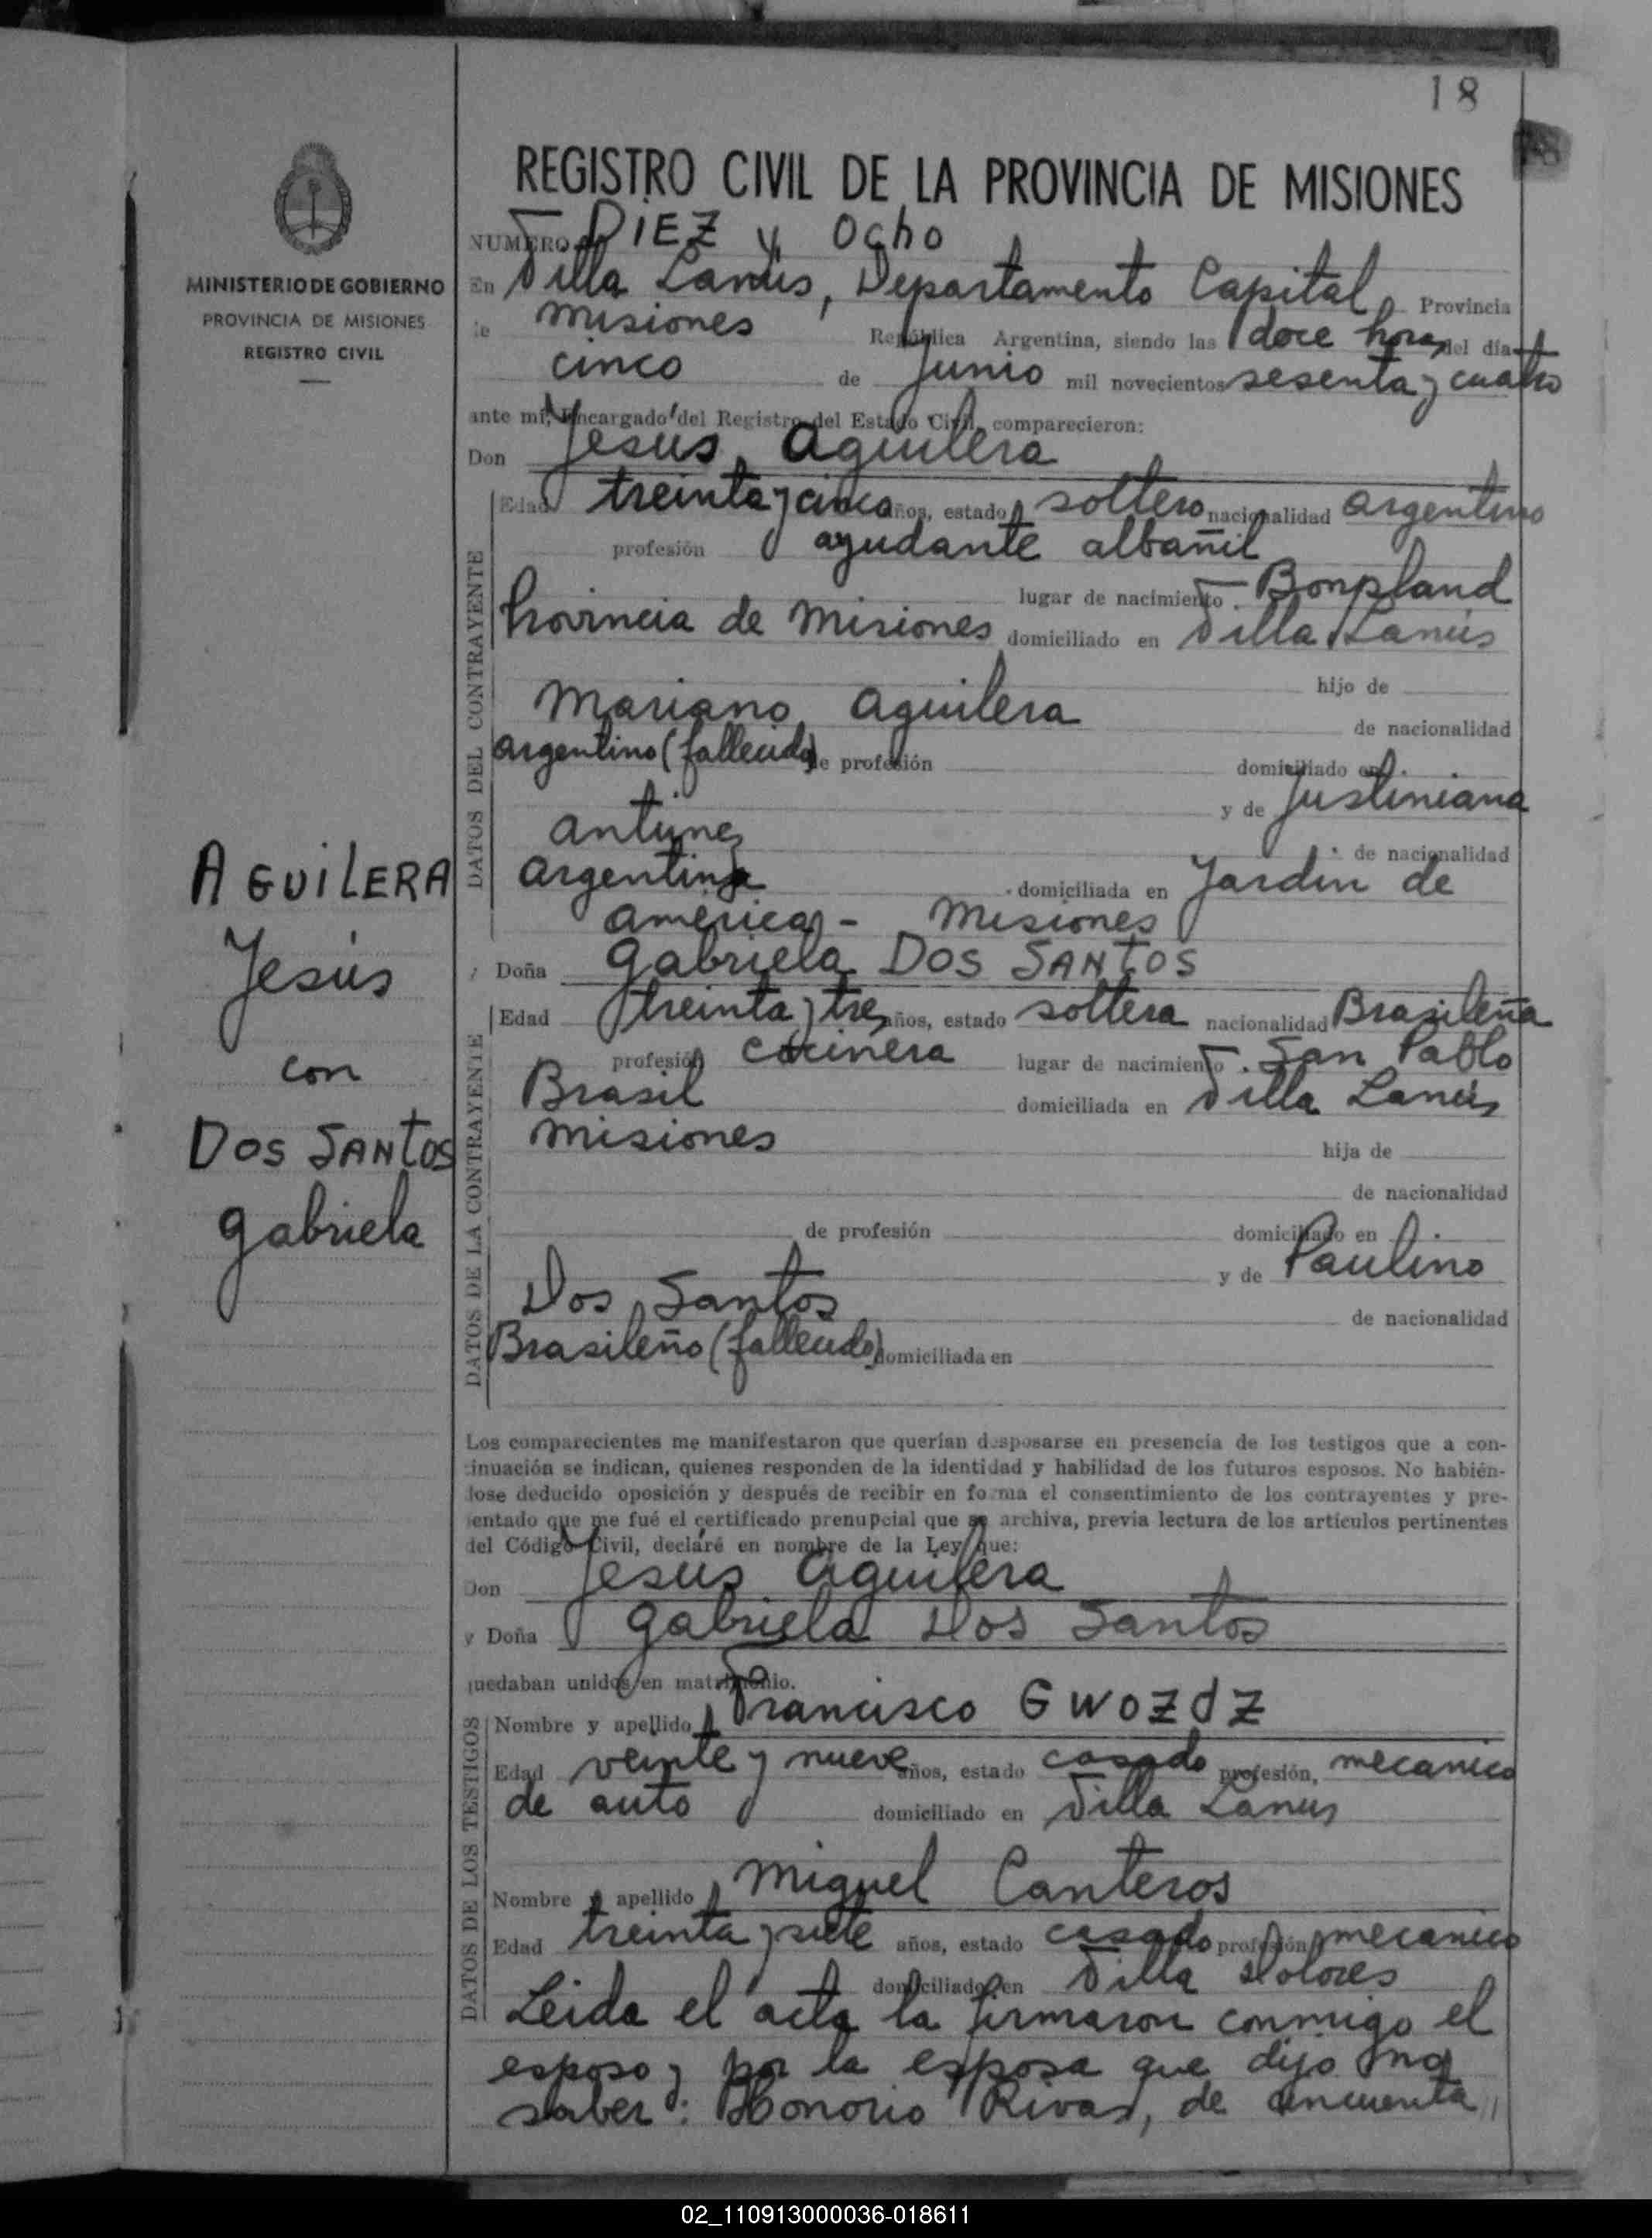 18
MINISTERIO DE GOBIERNO
PROVINCIA DE MISIONES
REGISTRO CIVIL
AGUILERA
Jesús
con
DOS SANTOS
Gabriela
REGISTRO CIVIL DE LA PROVINCIA DE MISIONES
NUMERO DIEZ y Ocho
En Villa Lanús, Departamento Capital Provincia
de Misiones República Argentina, siendo las doce horas del día
cinco de Junio mil novecientos sesenta y cuatro
ante mí, Encargado del Registro del Estado Civil, comparecieron:
Don Jesus Aguilera
DATOS DEL CONTRAYENTE
Edad treinta y cinco años, estado soltero nacionalidad argentino
profesión ayudante albañil
lugar de nacimiento Bonpland
Provincia de Misiones domiciliado en Villa Lanús
hijo de
Mariano Aguilera de nacionalidad
argentino (fallecido) de profesión domiciliado en
y de Justiniana
Antunez de nacionalidad
argentina domiciliada en Jardin de
America - Misiones
y Doña Gabriela DOS SANTOS
DATOS DE LA CONTRAYENTE
Edad treinta y tres años, estado soltera nacionalidad Brasileña
profesión cocinera lugar de nacimiento San Pablo
Brasil domiciliada en Villa Lanús
Misiones hija de
de nacionalidad
de profesión domiciliado en
y de Paulino
Dos Santos de nacionalidad
Brasileño (fallecido) domiciliada en
Los comparecientes me manifestaron que querían desposarse en presencia de los testigos que a con-
tinuación se indican, quienes responden de la identidad y habilidad de los futuros esposos. No habién-
dose deducido oposición y después de recibir en forma el consentimiento de los contrayentes y pre-
sentado que me fué el certificado prenupcial que se archiva, previa lectura de los artículos pertinentes
del Código Civil, declaré en nombre de la Ley que:
Don Jesus Aguilera
y Doña Gabriela Dos Santos
quedaban unidos en matrimonio.
DATOS DE LOS TESTIGOS
Nombre y apellido Francisco GWOZdZ
Edad veinte y nueve años, estado casado profesión, mecanico
de auto domiciliado en Villa Lanus
Nombre y apellido Miguel Canteros
Edad treinta y siete años, estado casado profesión mecanico
domiciliado en Villa Dolores
Leida el acta la firmaron conmigo el
esposo y por la esposa que dijo no
saber: Honorio Rivas, de cincuenta
02_110913000036-018611